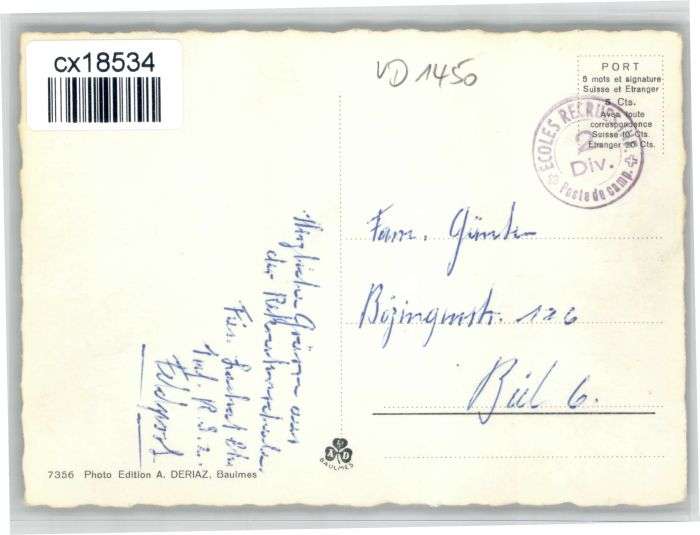 cx18534
VD 1450
PORT
5 mots et signature
Suisse et Etranger
5 Cts.
Avec toute
correspondance
Suisse 10 Cts.
Etranger 20 Cts.
ECOLES RECRUES
2
Div.
Poste de camp.
Fam.
Bözingenstr. 126
Biel 6.
Herzliche Grüsse aus
der Rekrutenschule
Füs.
Inf. R.S. 2.
Feldpost
A D
BAULMES
7356 Photo Edition A. DERIAZ, Baulmes